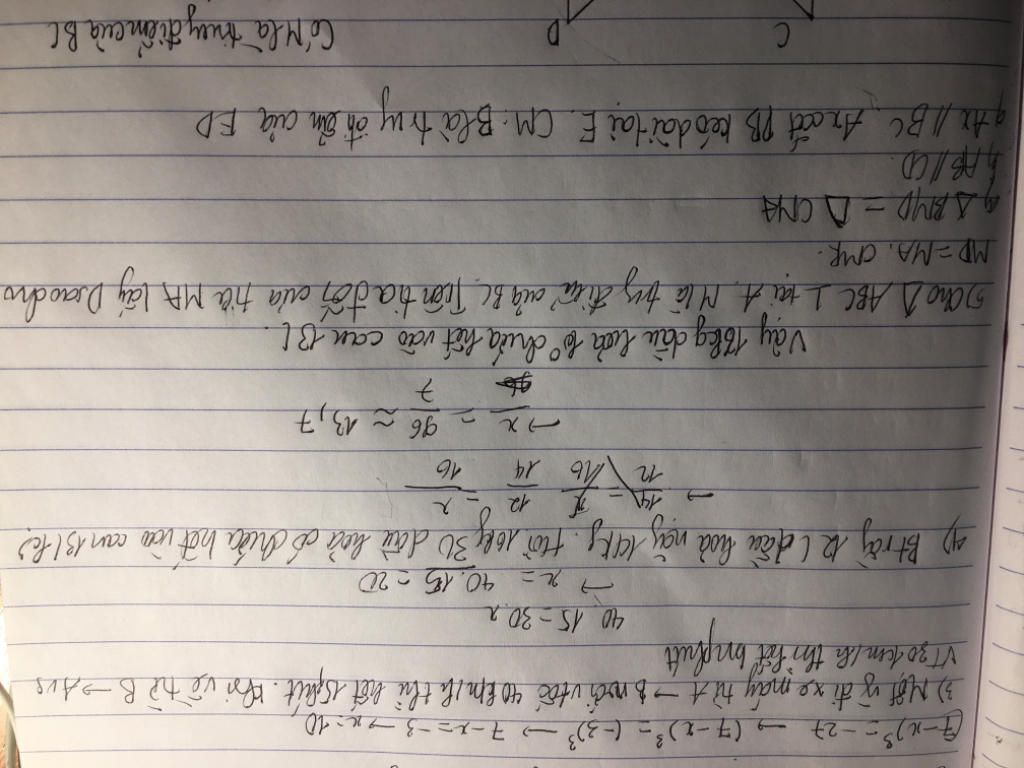 (7-x)³ = -27 → (7-x)³ = (-3)³ → 7-x = -3 → x = 10
3) Một ng đi xe máy từ A → B với vtốc 40 km/h thì hết 15 phút. Khi về từ B → A vs
VT 30 km/h thì hết bn phút
40.15 = 30.x
→ x = 40.15 / 30 = 20
4) Bt rằng 12 l dầu hoả nặng 14kg. Hỏi 16kg dầu hoả có chứa hết vào can 13l k?
→ 12/14 = x/16
→ x = 96/7 ≈ 13,7
Vậy 16kg dầu hoả k° chứa hết vào can 13l.
5) Cho △ ABC ⊥ tại A. M là trug điểm của BC. Trên tia đối của tia MA lấy D sao cho
MD = MA. CMR.
a, △ BMD = △ CMA
b, AB // CD
c, Ax // BC. Ax cắt DB kéo dài tại E. CM. B là trug điểm của ED
C D Có M là trug điểm của BC